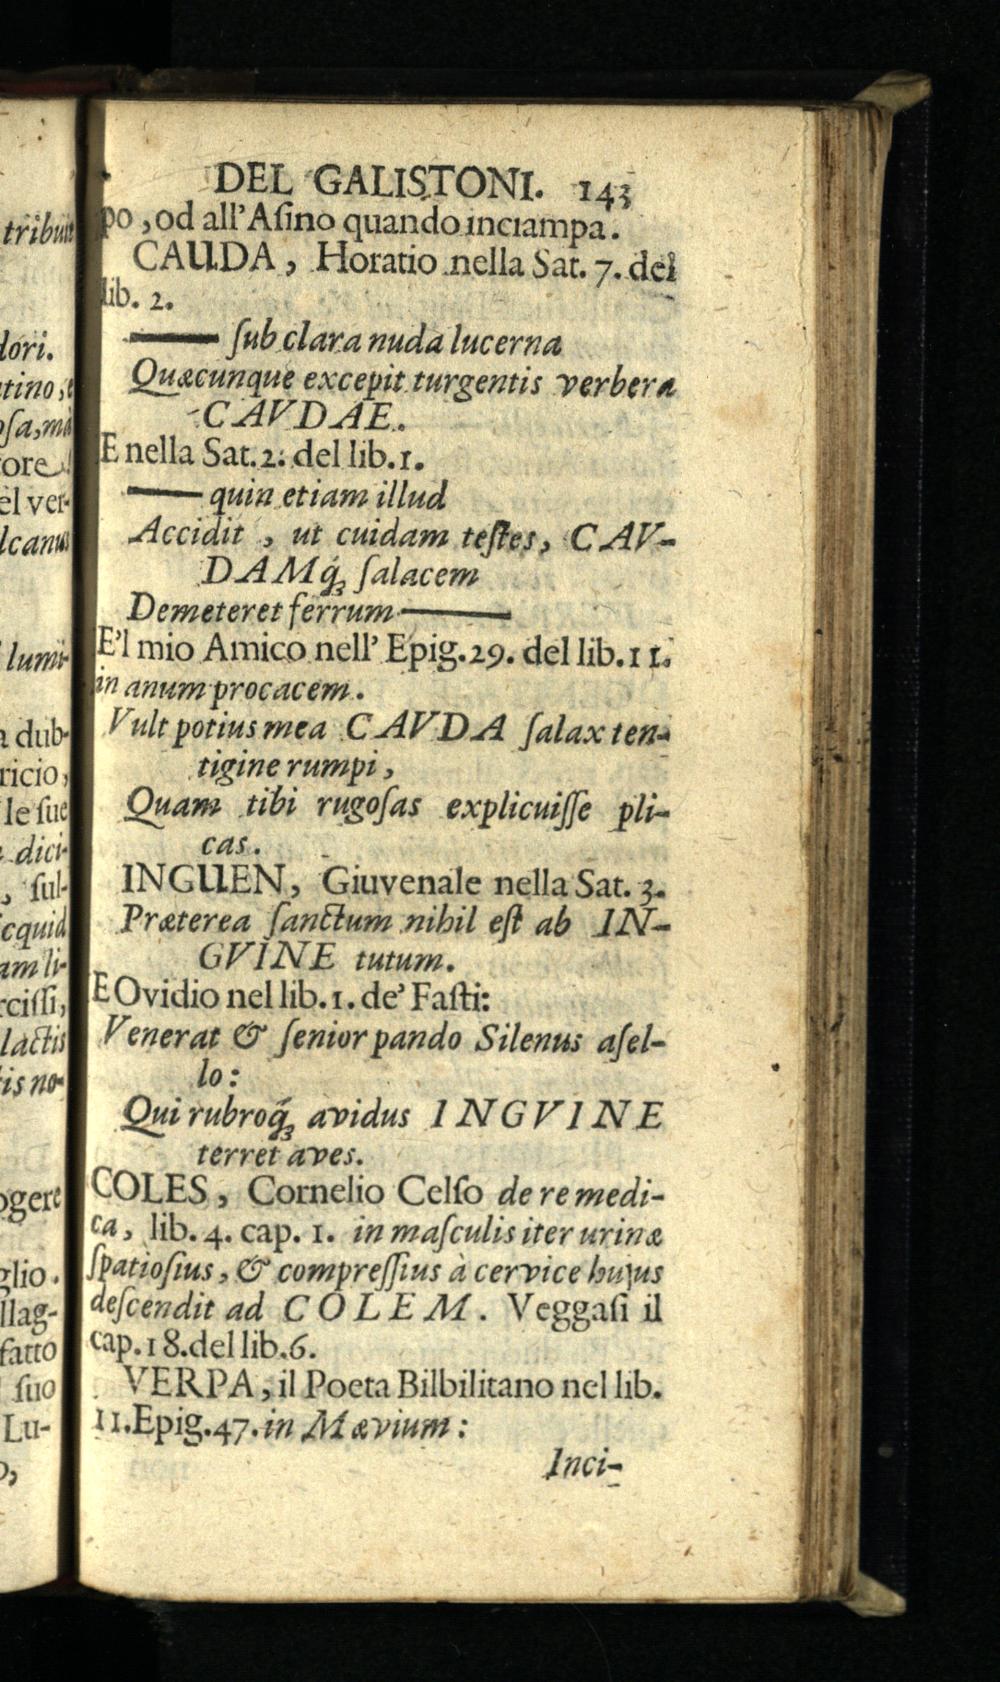 DEL GALISTONI. 143
po, od all'Aſino quando inciampa.
CAUDA, Horatio nella Sat. 7. del
lib. 2.
—— ſub clara nuda lucerna
Quæcunque excepit turgentis verbera
CAVDAE.
E nella Sat. 2. del lib. 1.
—— quin etiam illud
Accidit, ut cuidam teſtes, CAV-
DAMq́ꝫ ſalacem
Demeteret ferrum ——
E'l mio Amico nell' Epig. 29. del lib. 11.
in anum procacem.
Vult potius mea CAVDA ſalax ten-
tigine rumpi,
Quam tibi rugoſas explicuiſſe pli-
cas.
INGUEN, Giuvenale nella Sat. 3.
Præterea ſanctum nihil eſt ab IN-
GVINE tutum.
E Ovidio nel lib. 1. de' Faſti:
Venerat & ſenior pando Silenus aſel-
lo:
Qui rubroq́ꝫ avidus INGVINE
terret aves.
COLES, Cornelio Celſo de re medi-
ca, lib. 4. cap. 1. in maſculis iter urinæ
ſpatioſius, & compreſſius à cervice hujus
deſcendit ad COLEM. Veggaſi il
cap. 18. del lib. 6.
VERPA, il Poeta Bilbilitano nel lib.
11. Epig. 47. in Mævium:
Inci-
tribuit
dori.
el ver-
lumi-
dub-
ricio,
le ſue
dici-
, ſul-
am li-
lactis
tis no-
glio.
fatto
ſuo
Lu-